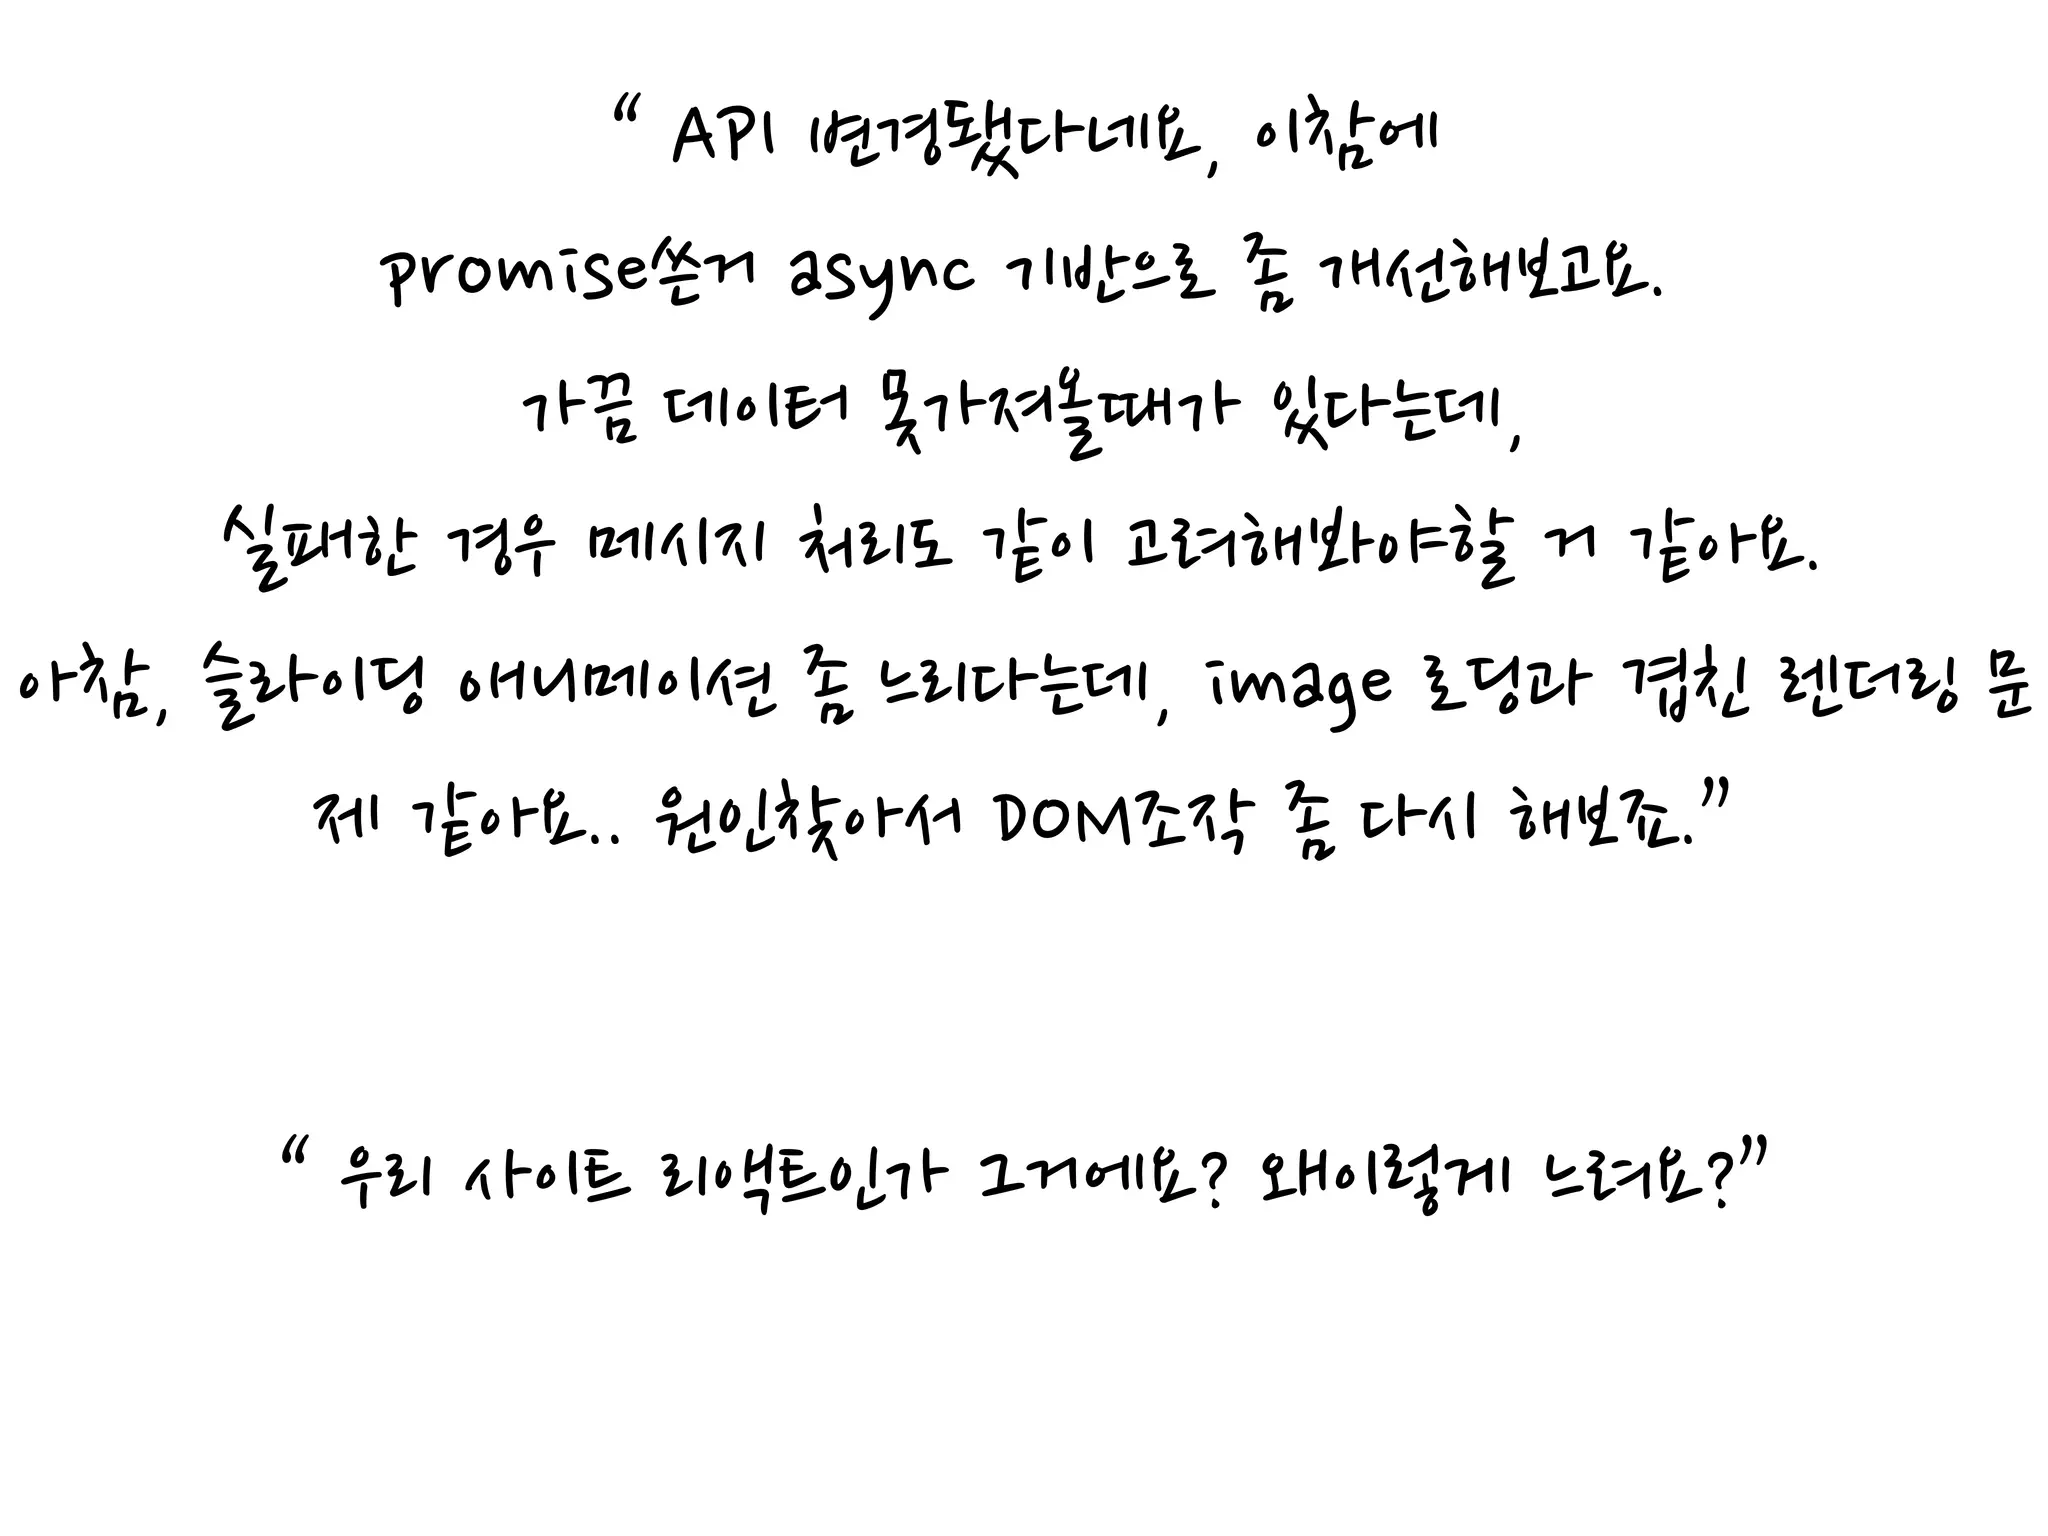 “ API 변경됐다네요, 이참에
promise쓴거 async 기반으로 좀 개선해보고요.
가끔 데이터 못가져올때가 있다는데,
실패한 경우 메시지 처리도 같이 고려해봐야할 거 같아요.
아참, 슬라이딩 애니메이션 좀 느리다는데, image 로딩과 겹친 렌더링 문
제 같아요.. 원인찾아서 DOM조작 좀 다시 해보죠.”
“ 우리 사이트 리액트인가 그거에요? 왜이렇게 느려요?”